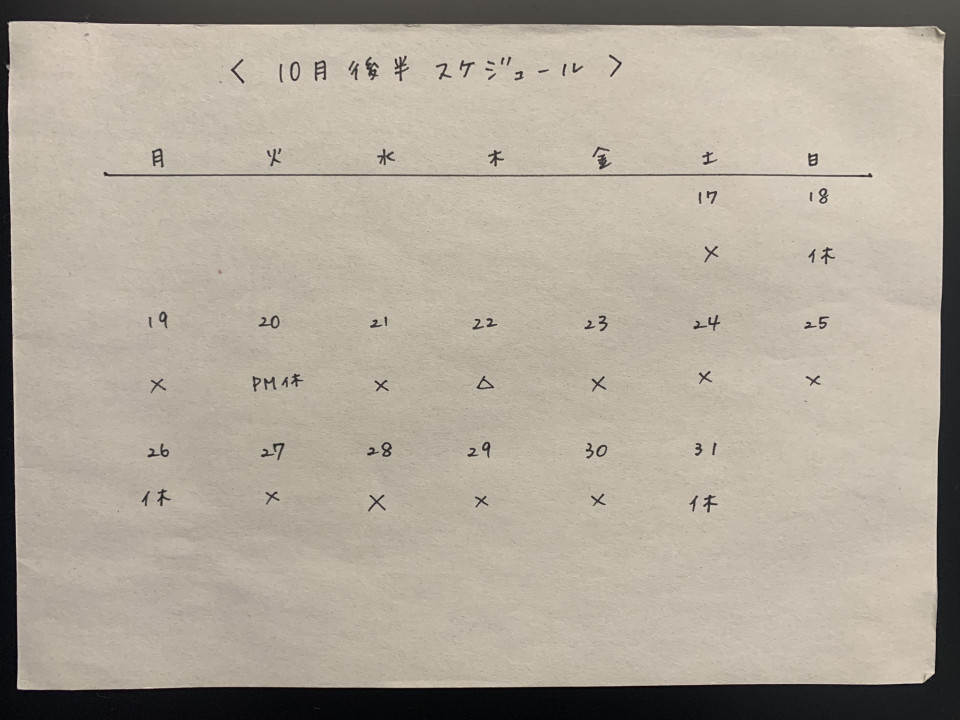 〈 10月後半 スケジュール 〉
月 火 水 木 金 土 日
17 18
× 休
19 20 21 22 23 24 25
× PM休 × △ × × ×
26 27 28 29 30 31
休 × × × × 休